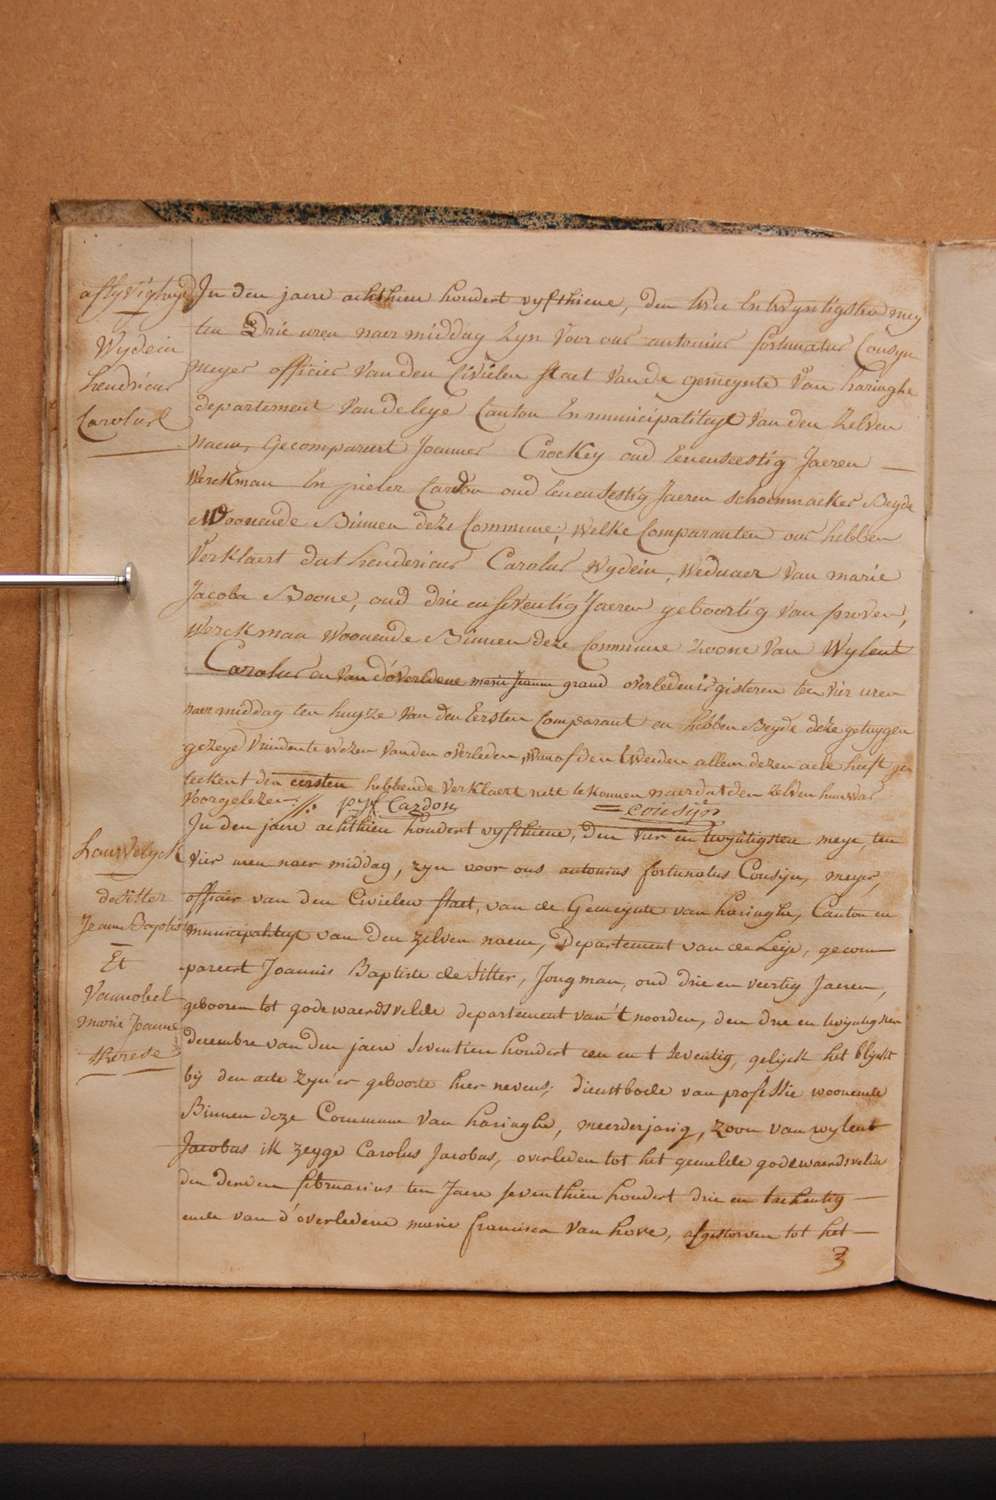 aflyvighyd
Wydein
hendricus
Carolus
In den jaere achthien hondert vyfthiene, den twee Entwyntigsten mey
ten Drie uren naer middag zyn voor ons antonius fortunatus Cousyn
meyer officier van den Civielen staet van de gemeynte van haringhe
departement van de leye Canton En municipaliteyt van den zelven
naem, Gecompareert Joannes Crockey oud eenenseestig Jaeren
Werckman En pieter Cardon oud eenensestig Jaeren schoenmacker Beyde
Woonende Binnen deze Commune; Welke Comparanten ons hebben
Verklaert dat hendericus Carolus Wydein, Weduaer van marie
Jacoba Boone, oud drie en seventig Jaeren geboortig van proven,
Werckman Woonende Binnen deze Commune zoone van Wylent
Carolus en van d'overledene marie Joanne grand overleden is gisteren ten vier uren
naer middag ten huyze van den Eersten Comparant en hebben Beyde deze getuygen
gezeyd Vrinden te wezen van den overleden, Wanof den tweeden alleen dezen acte heeft ge
teekent den eersten hebbende verklaert niet te konnen naer dat den zelven hun was
voorgelezen p: j: Cardon
Cousijn
Lauwelyck
de sitter
Jean Baptist
Et
Vannobel
marie Joanne
therese
In den jaere achthien hondert vyfthiene, den vier en twyntigsten meye ten
vier uren naer middag, zyn voor ons antonius fortunatus Cousyn, meyer,
officier van den Civielen staet, van de Gemeynte van haringhe, Canton en
municipaliteyt van den zelven naem, Departement van de Leije, gecom
pareert Joannis Baptiste de sitter, Jongman, oud drie en veertig Jaeren,
gebooren tot godewaersvelde departement van 't noorden, den drie en twyntigsten
decembre van den jaere seventien hondert een en t seventig, gelijck het blijckt
bij den acte zyn'er geboorte hier nevens; dienstbode van professie woonende
Binnen deze Commune van haringhe, meerderjarig, zoon van wylent
Jacobus ik zegge Carolus Jacobus, overleden tot het gemelde godewaersvelde
den derden februarius ten Jaere seventhien hondert drie en tachentig
ende van d'overledene marie francisca van hove, afgestorven tot het
3